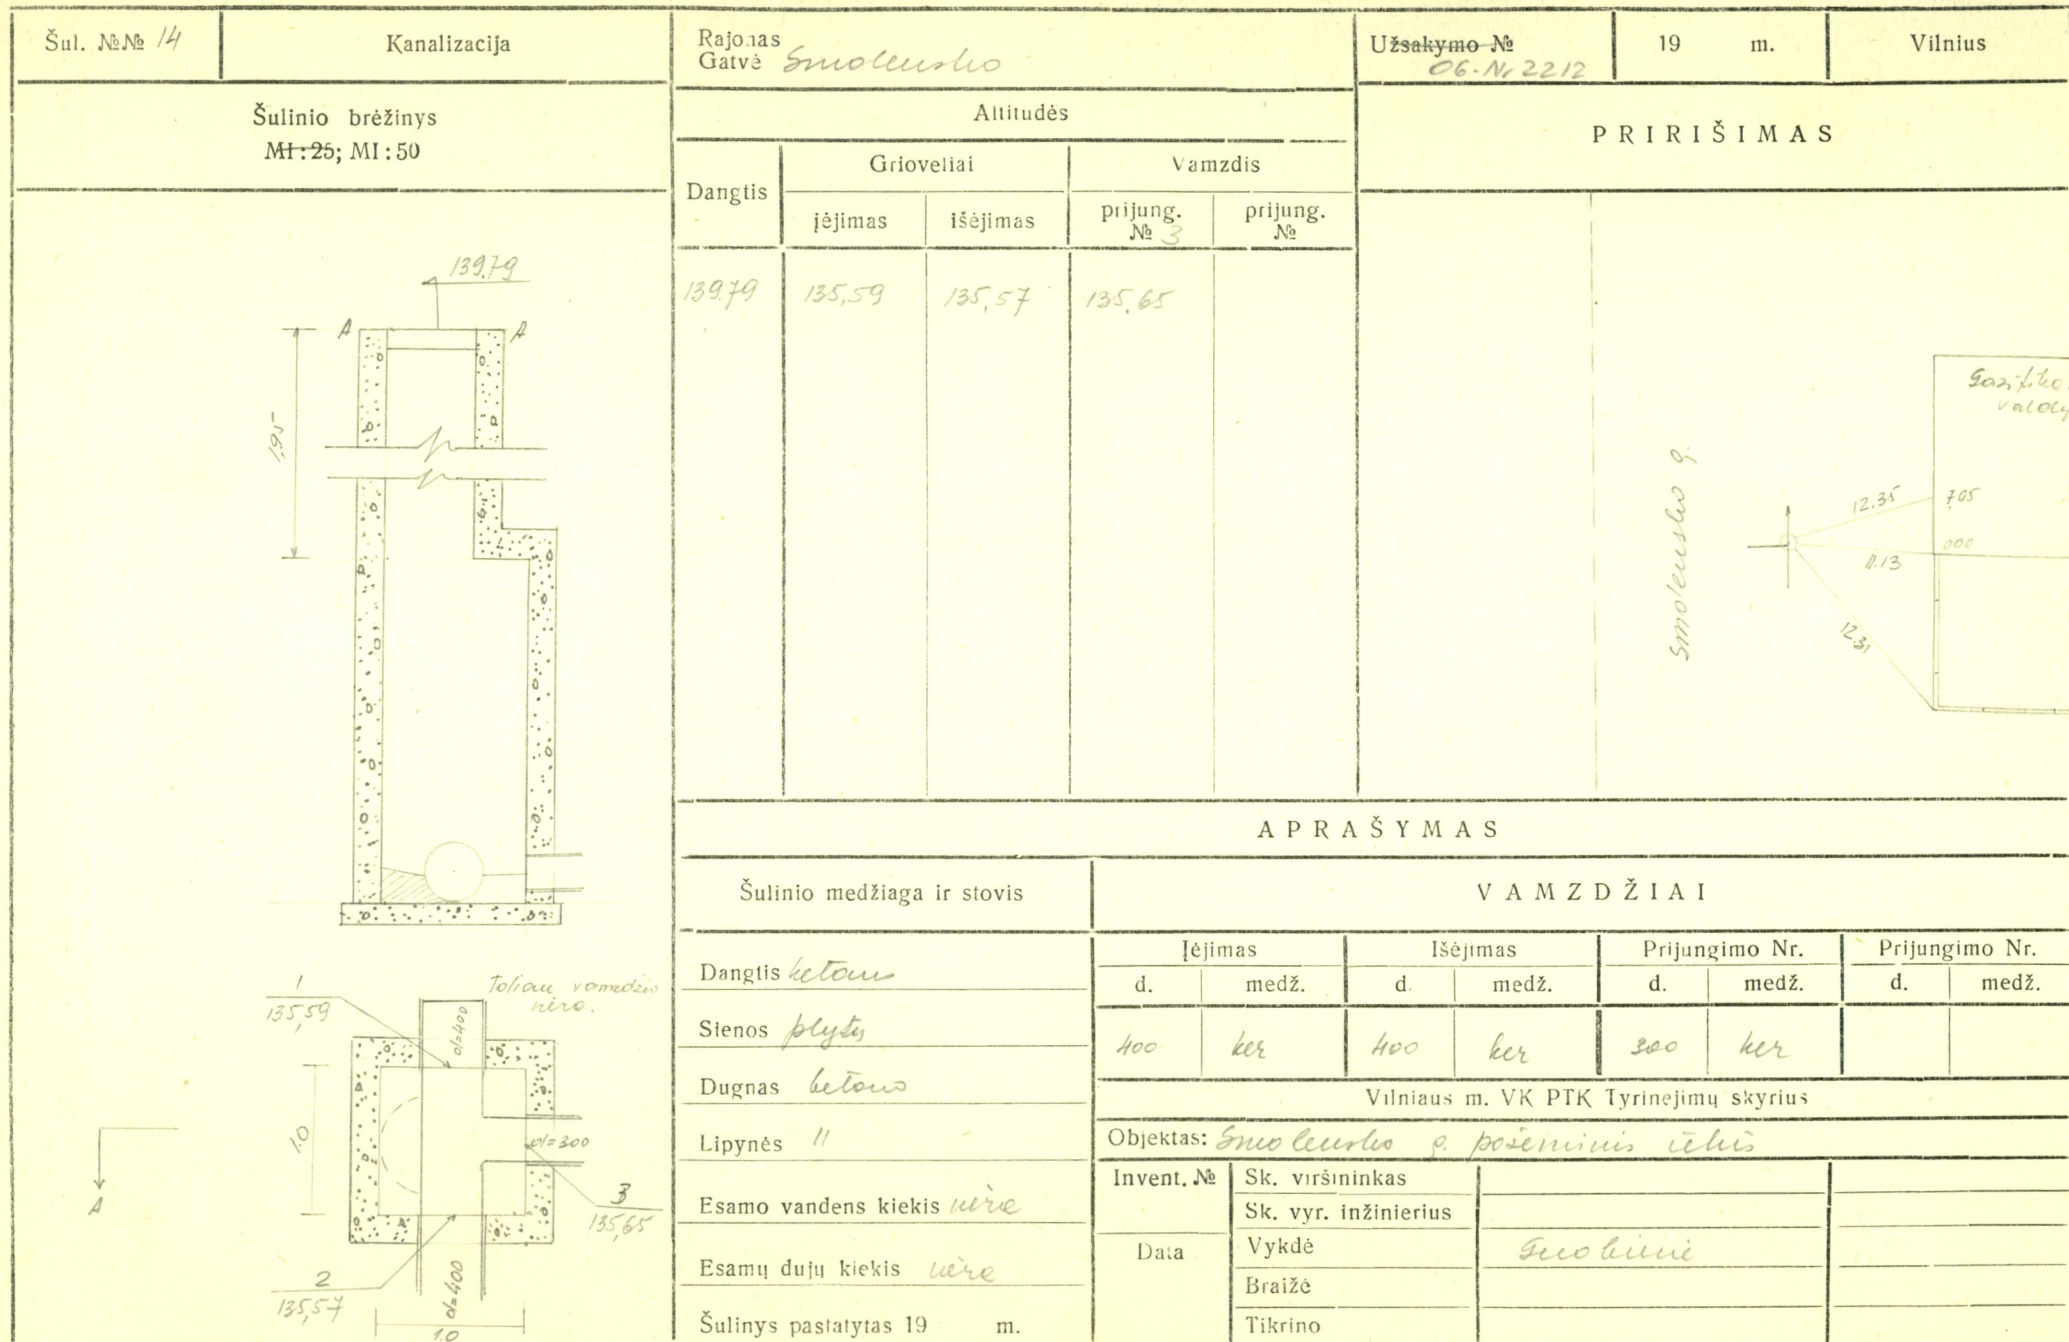 Šul. №№ 14
Kanalizacija
Rajonas
Gatvė Smolensko
Užsakymo №
06-Nr 2212
19 m.
Vilnius
Šulinio brėžinys
M1:25; M1:50
Altitudės
Dangtis
Grioveliai
Vamzdis
įėjimas
išėjimas
prijung. № 3
prijung. №
139.79
135,59
135,57
135,65
PRIRIŠIMAS
Smolensko g.
12.35
7.05
0.00
11.13
12.31
139.79
A
A
1,95
1
135,59
Toliau vamzdžio
nėra.
d=400
1.0
d=300
A
3
135,65
2
135,57
d=400
1.0
APRAŠYMAS
Šulinio medžiaga ir stovis
Dangtis ketaus
Sienos plytų
Dugnas betono
Lipynės 11
Esamo vandens kiekis nėra
Esamų dujų kiekis nėra
Šulinys pastatytas 19 m.
VAMZDŽIAI
Įėjimas
Išėjimas
Prijungimo Nr.
Prijungimo Nr.
d. medž. d. medž. d. medž. d. medž.
400 ker 400 ker 300 ker
Vilniaus m. VK PTK Tyrinėjimų skyrius
Objektas: Smolensko g. požeminis ūkis
Invent. №
Data
Sk. viršininkas
Sk. vyr. inžinierius
Vykdė
Braižė
Tikrino